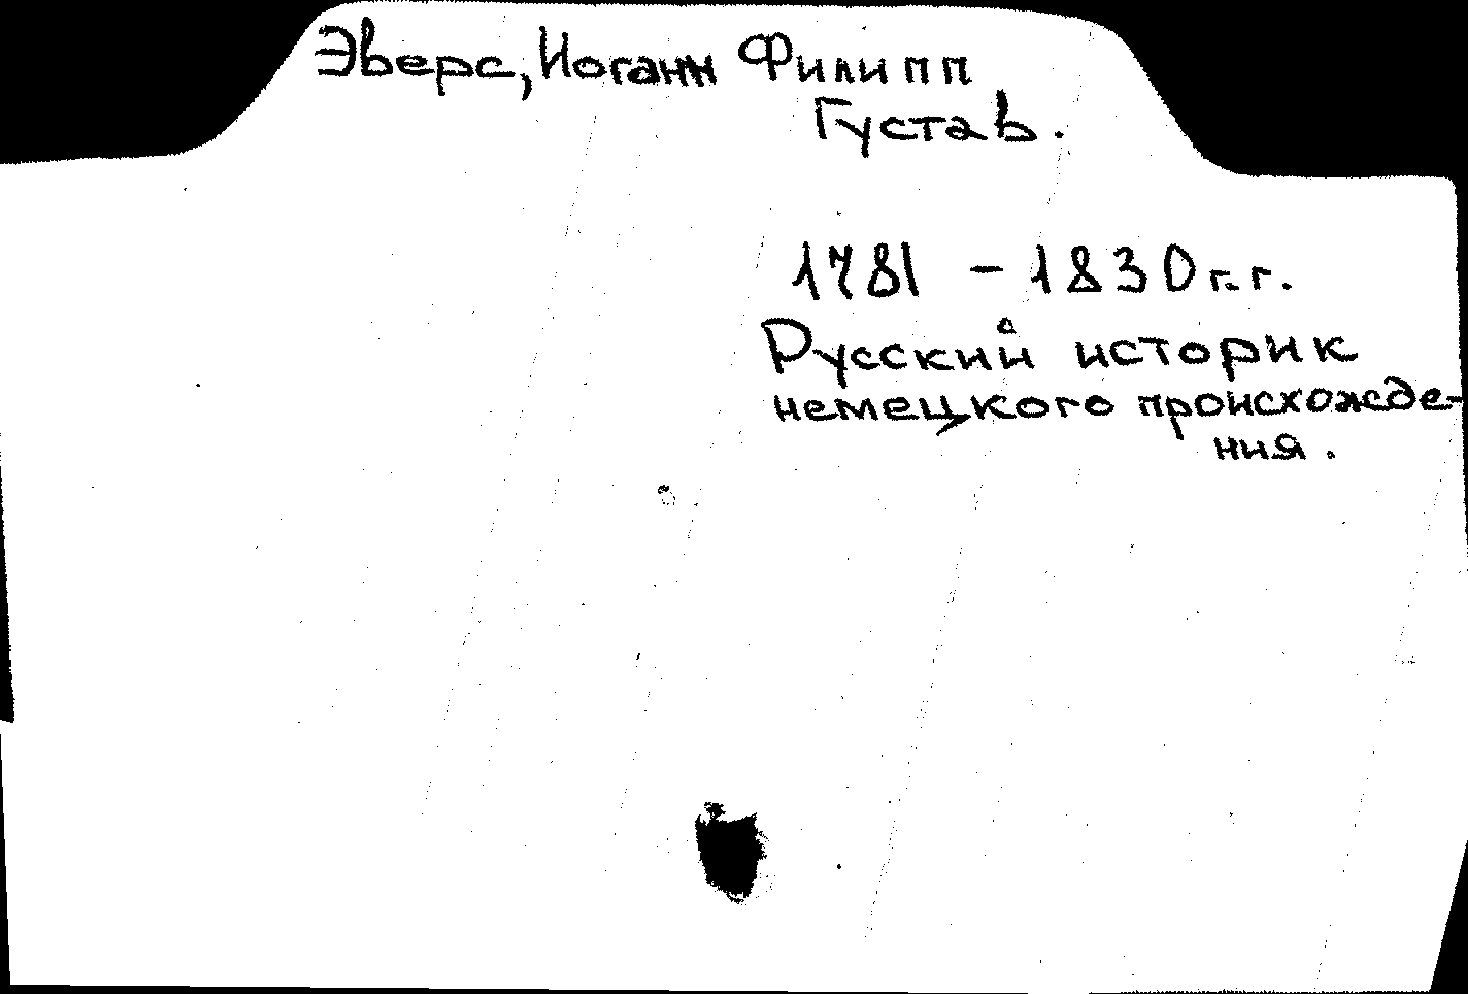 Эверс, Иоганн Филипп
Густав.
1781 - 1830 г.г.
Русский историк
немецкого происхожде-
ния.